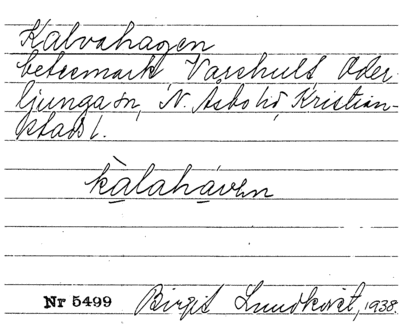 Kalvahagen
betesmark, Varshult, Oder-
ljunga sn, N. Åsbo hd, Kristian-
stads l.
kàlahávɘn
Nr 5499 Birgit Lundkvist, 1938.